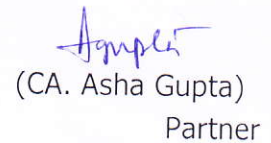 Agupta
(CA. Asha Gupta)
Partner